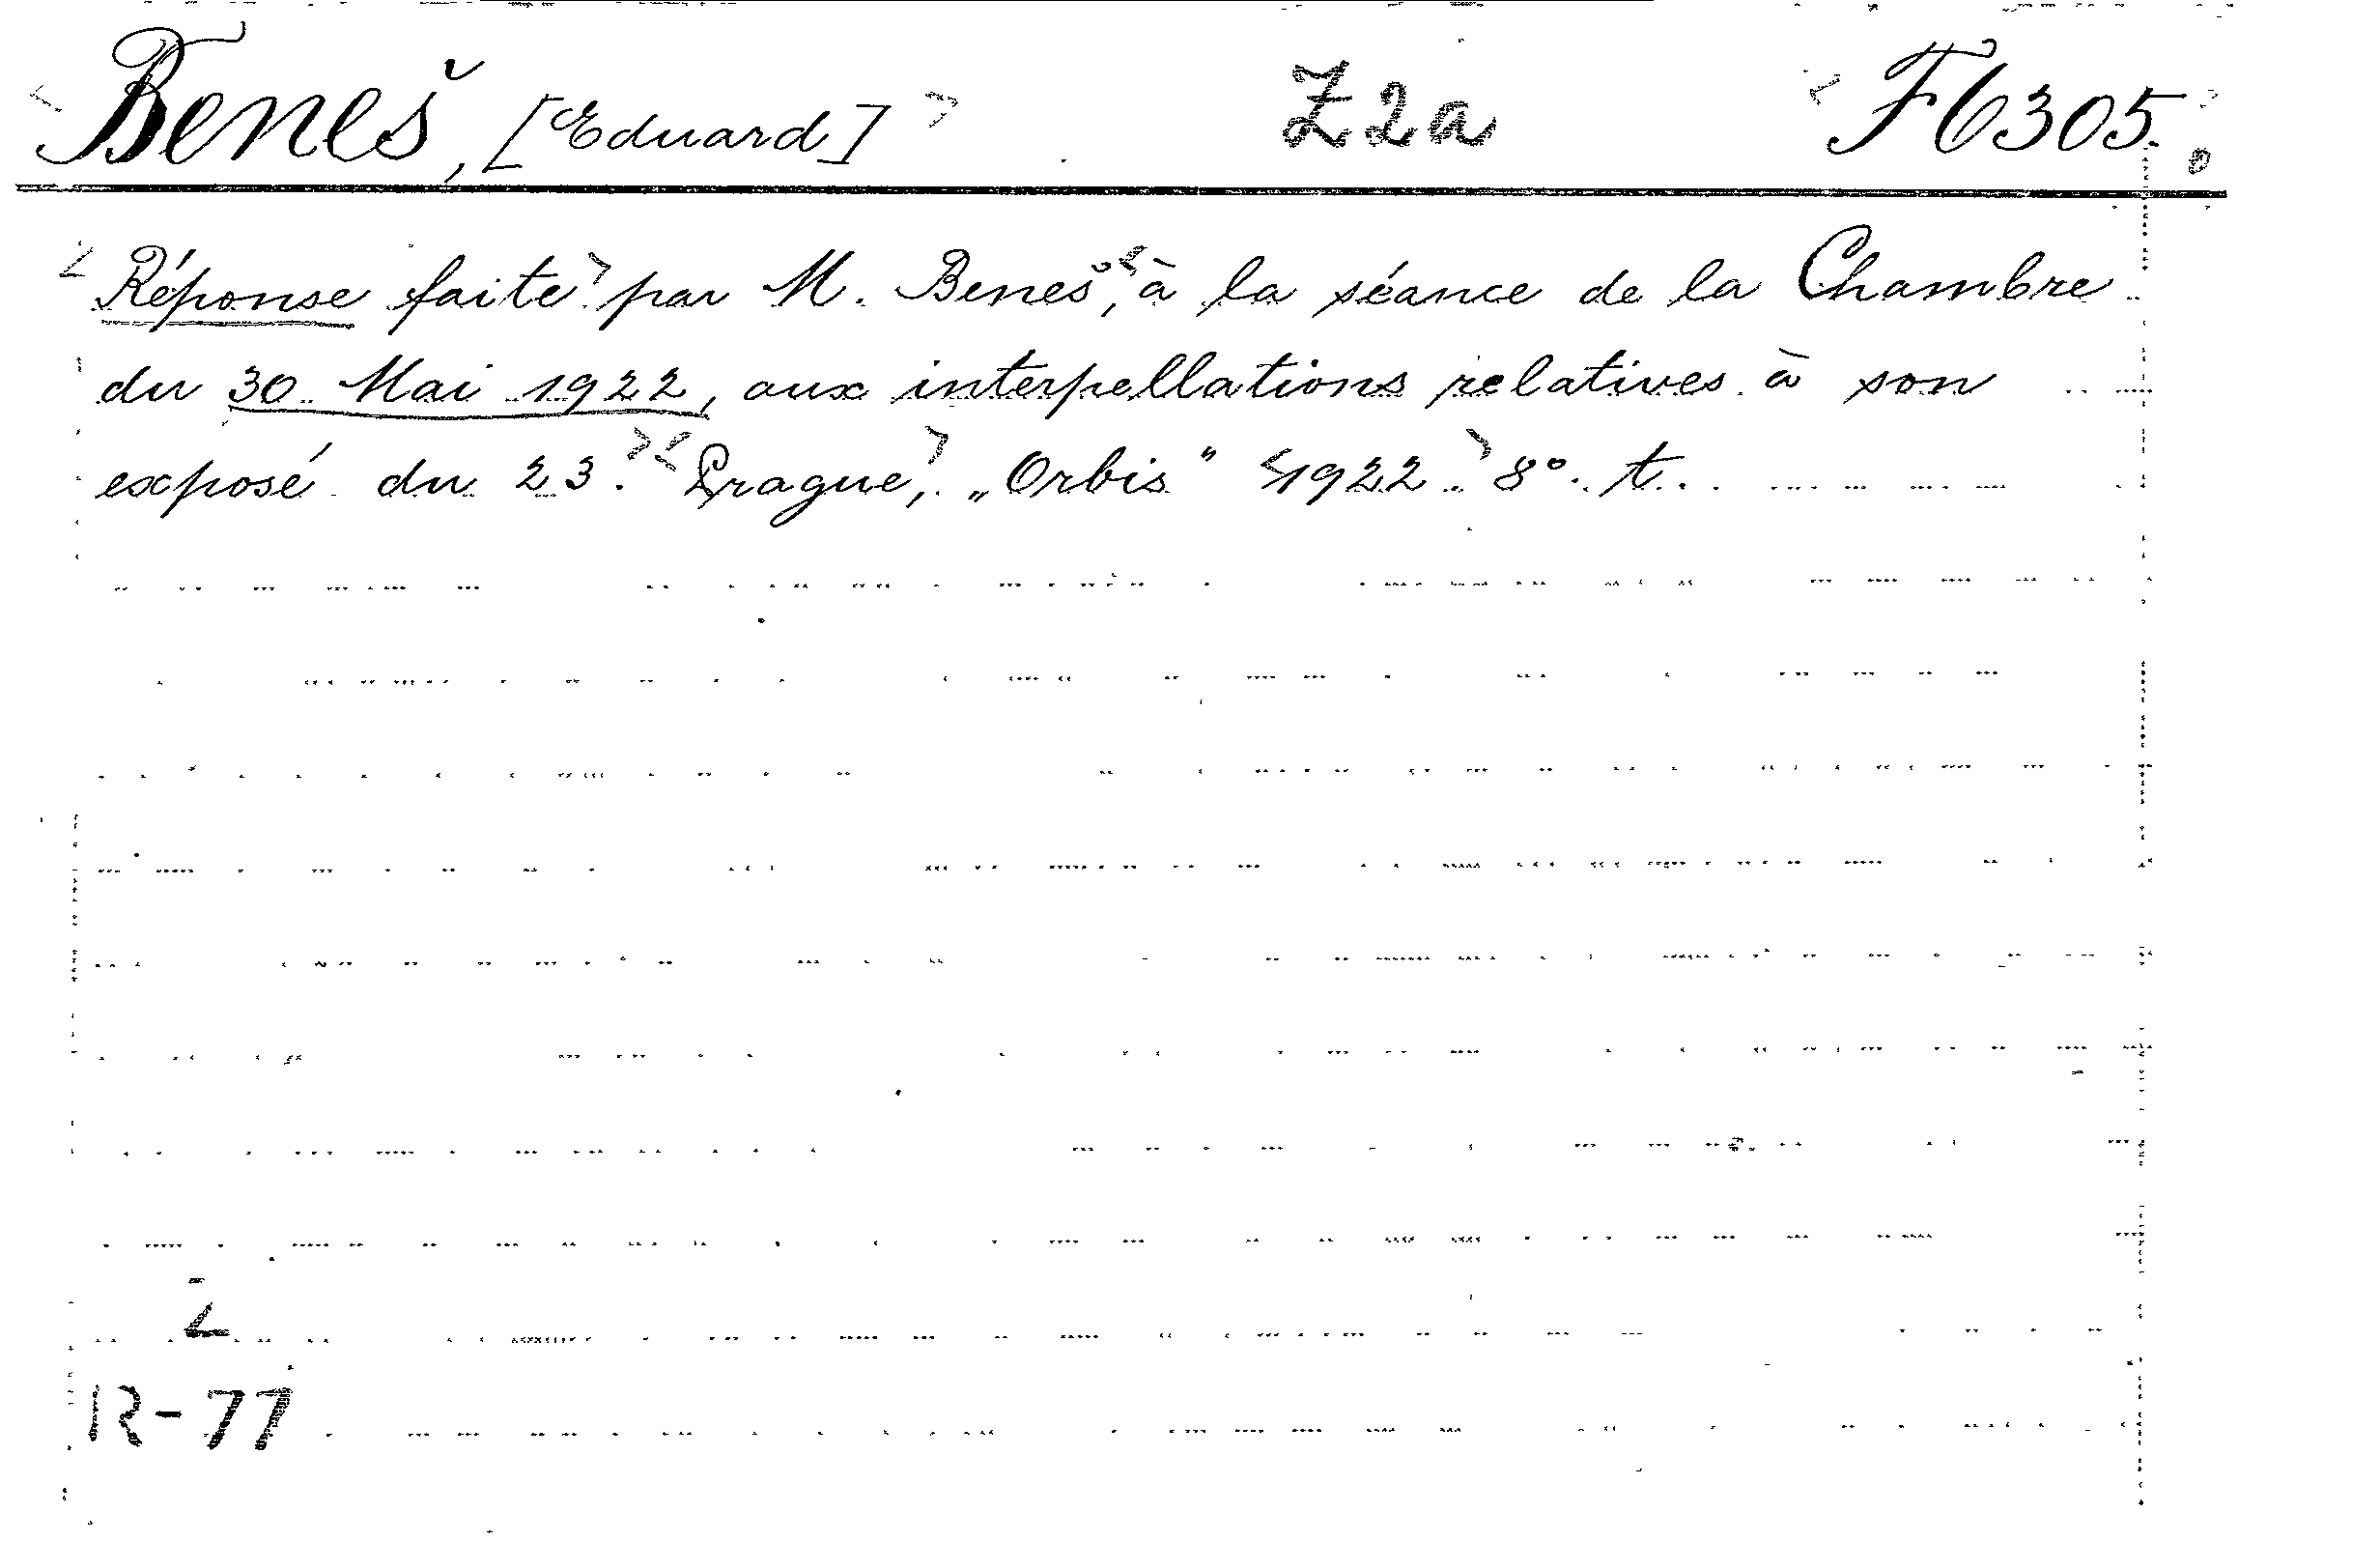 Beneš, [Eduard] Z2a F6305.
Réponse faite par M. Beneš, à la séance de la Chambre
du 30 Mai 1922, aux interpellations relatives à son
exposé du 23. Prague, „Orbis" 1922 8°. t.
R-77